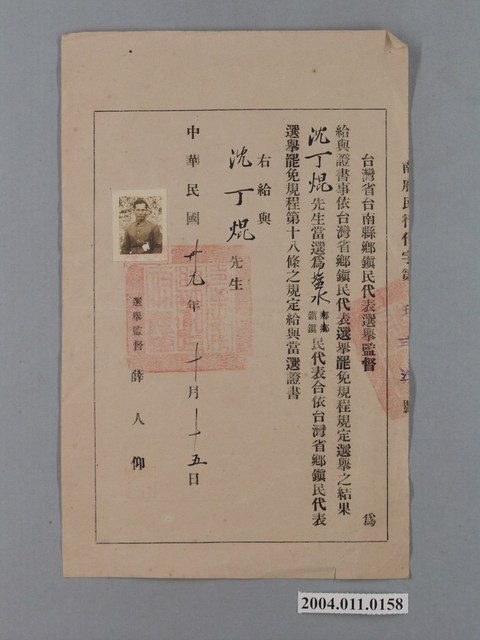 台灣省台南縣鄉鎮民代表選舉監督 為
給與證書事依台灣省鄉鎮民代表選舉罷免規程規定選舉之結果
沈丁焜先生當選為塩水鄉鎮民代表合依台灣省鄉鎮民代表
選舉罷免規程第十八條之規定給與當選證書
右給與
沈丁焜先生
選舉監督 薛人仰
中華民國卅九年十月十五日
2004.011.0158